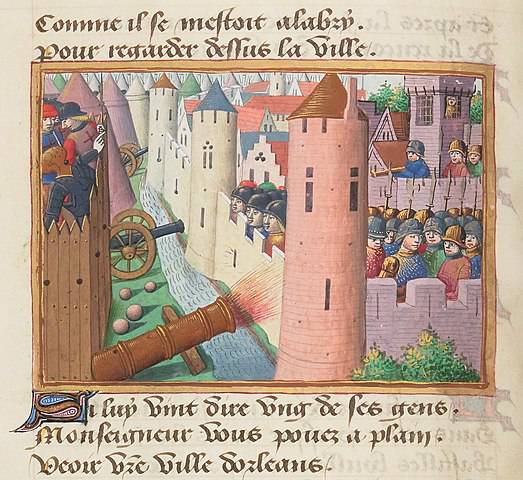 Comme il se mestoit alabry.
Pour regarder dessus la ville.
Sa luy vint dire vng de ses gens.
Monseigneur vous pouez a plain.
Veoir vre ville dorleans.
Et apres